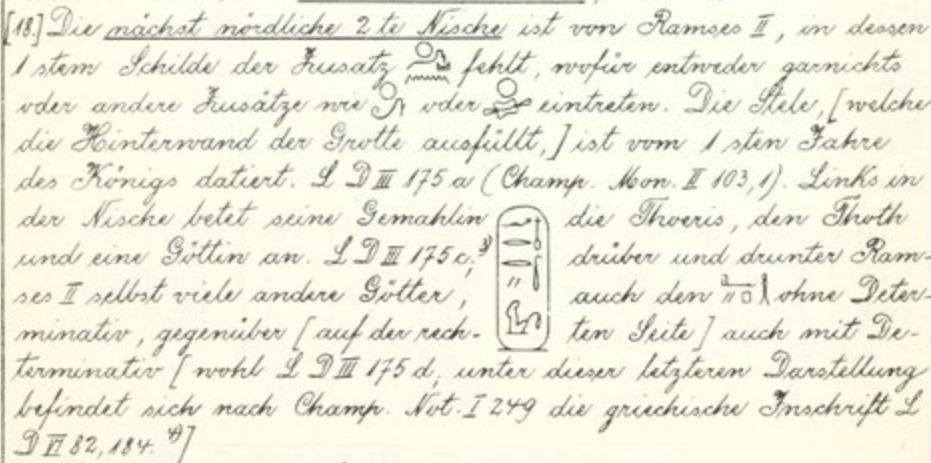 [18.] Die nächst nördliche 2 te Nische ist von Ramses II, in dessen
1 stem Schilde der Zusatz fehlt, wofür entweder garnichts
oder andere Zusätze wie oder eintreten. Die Stele, [welche
die Hinterwand der Grotte ausfüllt,] ist vom 1 sten Jahre
des Königs datiert. L D III 175 a (Champ. Mon. II 103,1). Links in
der Nische betet seine Gemahlin die Thoeris, den Thoth
und eine Göttin an. L D III 175 c, 3) drüber und drunter Ram-
ses II selbst viele andere Götter, auch den ohne Deter-
minativ, gegenüber [auf der rech- ten Seite] auch mit De-
terminativ [wohl L D III 175 d, unter dieser letzteren Darstellung
befindet sich nach Champ. Not. I 249 die griechische Inschrift L
D VI 82, 184. 4)]